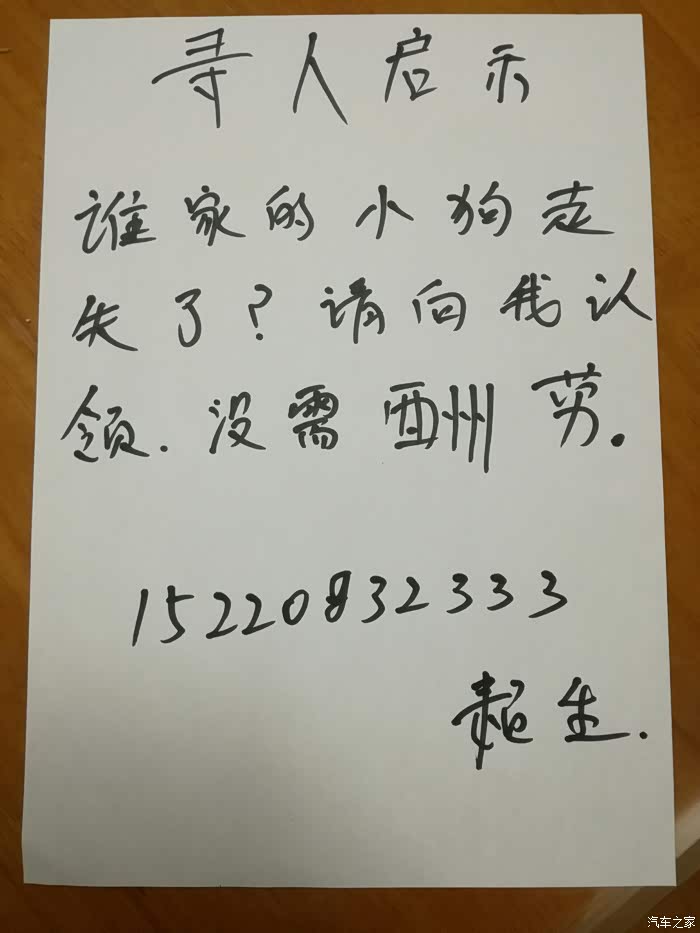 寻人启示
谁家的小狗走
失了？请向我认
领.没需酬劳.
15220832333
赖生.
汽车之家